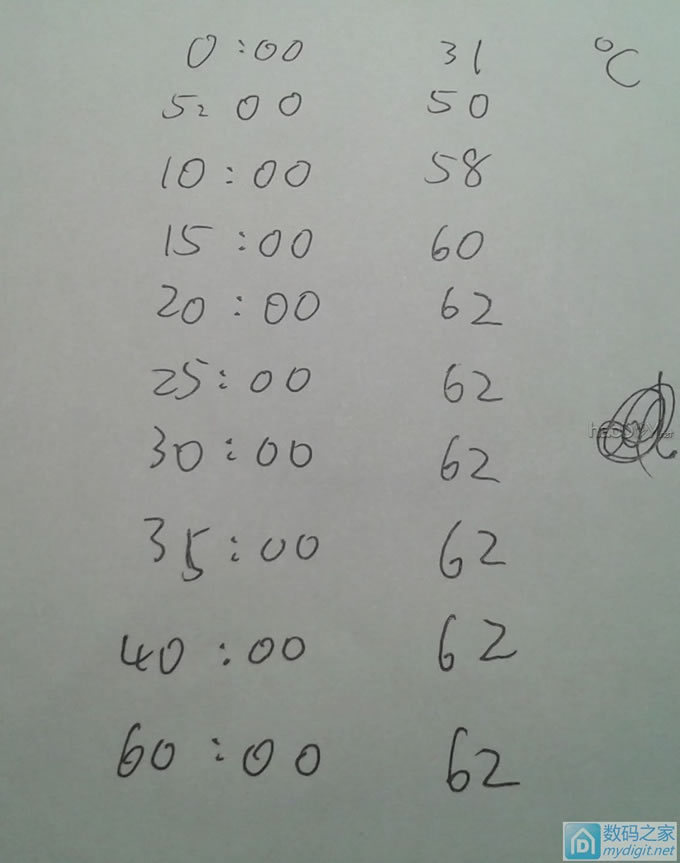 0:00 31 °C
5:00 50
10:00 58
15:00 60
20:00 62
25:00 62
30:00 62
35:00 62
40:00 62
60:00 62
数码之家
mydigit.net